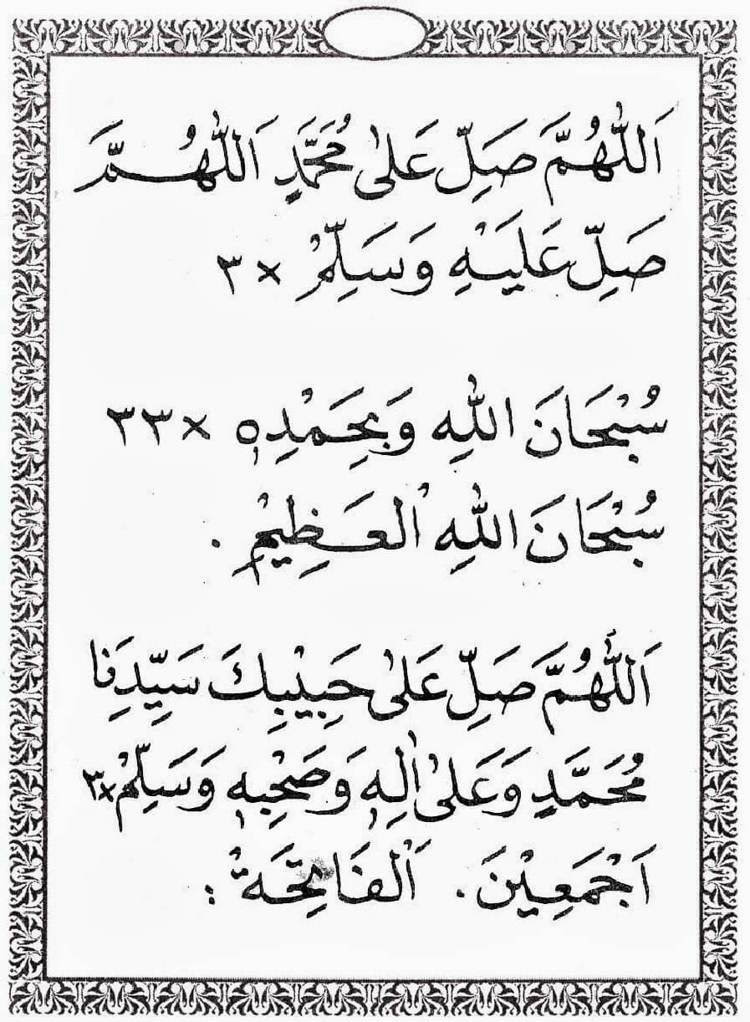 اَللّٰهُمَّ صَلِّ عَلٰى مُحَمَّدٍ اَللّٰهُمَّ
صَلِّ عَلَيْهِ وَسَلِّمْ ×٣
سُبْحَانَ اللهِ وَبِحَمْدِهٖ ×٣٣
سُبْحَانَ اللهِ الْعَظِيْمِ .
اَللّٰهُمَّ صَلِّ عَلٰى حَبِيْبِكَ سَيِّدِنَا
مُحَمَّدٍ وَعَلٰى اٰلِهٖ وَصَحْبِهٖ وَسَلِّمْ ×٣
اَجْمَعِيْنَ . اَلْفَاتِحَةْ :